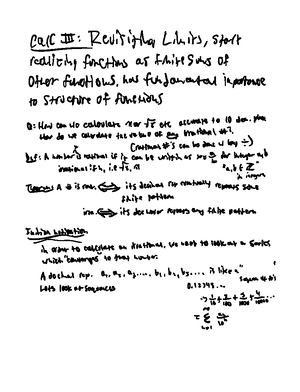 Calc III: Revisiting Limits, start
realizing functions as finite sums of
other functions, has fundamental importance
to structure of functions
Q: How can we calculate π or √2 etc. accurate to 10 dec. places
How do we calculate the value of any irrational #?
(rational #'s can be done w/ long ÷)
Def: A number is rational if it can be written as a/b for integer a, b
irrational if not, i.e. √2, π
"a, b ∈ ℤ"
in integers
Theorem: A # is rat. ⟺ its decimal rep eventually repeats some
finite pattern
irr. ⟺ its decimal repeats any finite pattern
Initial Motivation
in order to calculate an irrational, we want to look at a series
which "converges" to that number.
A decimal rep. a₁, a₂, a₃, ..., b₁, b₂, b₃, ... is like a
Lets look at sequences
0.12345...
→ 1/10 + 2/100 + 3/1000 + 4/10000 ...